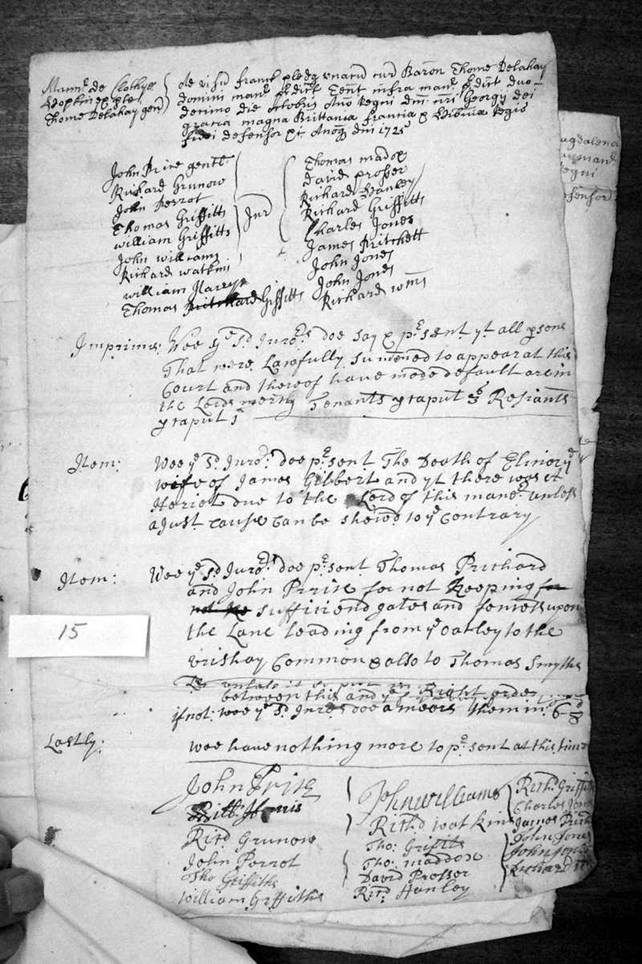 Mann: de Clothye
Thome Delahay gen
de visu franc pledg unacu cur Baron Thome Delahay
domini
decimo die octobis Ano Regni dm: nri Georgy dei
gratia magna Brittania francia & Hibernia Regis
fidei defensor &c Anoq dni 1725
John Price gent
Richard Grunow
John Perrot
Thomas Griffitts
william Griffitts
John williams
Richard watkins
william
Thomas Pritchard Griffitts
Jur
Thomas madox
David prosser
Richard Hanley
Richard Griffitts
Charles Jones
James Pritchett
John Jones
John Jones
Richard wms
Imprimis: Wee ye sd Juro:rs doe say & psent yt all psons
That were Lawfully Sumoned to appear at this
Court and thereof have made default are in
the Lords mercy Tenants & Resiants
Item: Wee ye sd Juro:rs doe psent The Death of Elinor ye
wife of James Gilbert and yt there was a
Heriet due to the Lord of this mane unless
a Just cause can be shewed to ye Contrary
Item: Wee ye sd Juro:rs doe psent Thomas Prichard
and John Price for not Keeping for
sufficiend gates and fences upon
the Lane leading from ye oatley to the
vrishay Common & also to Thomas Smythe
between this and Right order
if not: wee ye sd Juro:rs doe amears them in 6 8
Lastly: wee have nothing more to psent at this time
John Price
Harris
Ritd Grunow
John Perrot
Tho Griffiths
William Griffiths
John williams
Rithd watkins
Tho: Griffits
Tho: maddox
David Prosser
Ritd Hanley
Rithd Griffit
Charles Jones
James Prich
John Jones
John Jones
Richard
15